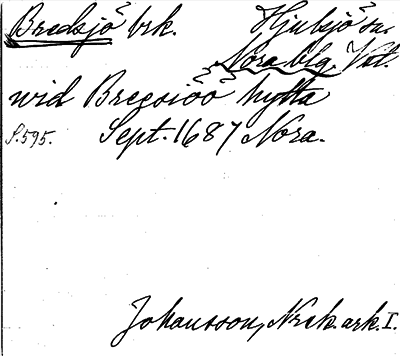 Bredsjö brk. Hjulsjö sn.
Nora blg. Vstl.
wid Bregsiöö hytta
S.595. Sept. 1687 Nora.
Johansson, Nrsk. ark. I.